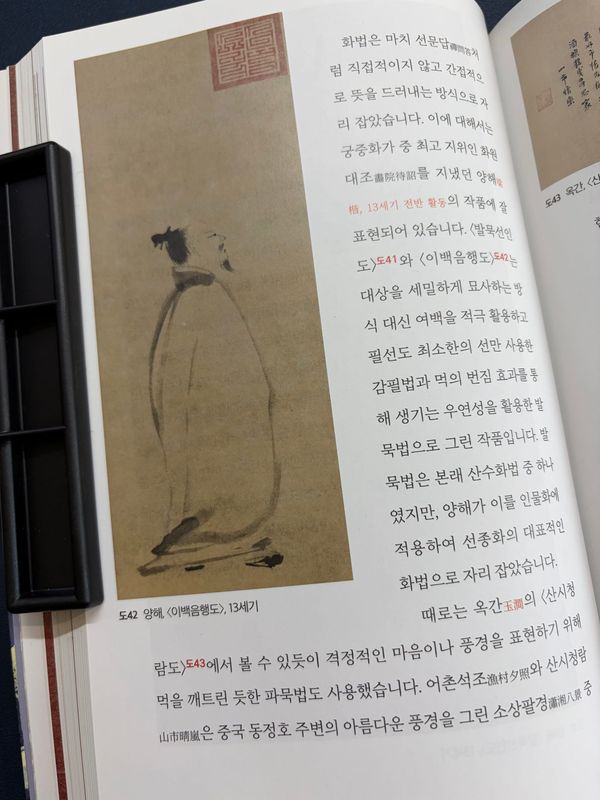 화법은 마치 선문답禪問答처
럼 직접적이지 않고 간접적으
로 뜻을 드러내는 방식으로 자
리 잡았습니다. 이에 대해서는
궁중화가 중 최고 지위인 화원
대조畫院待詔를 지냈던 양해梁
楷, 13세기 전반 활동의 작품에 잘
표현되어 있습니다. 〈발묵선인
도〉도41와 〈이백음행도〉도42는
대상을 세밀하게 묘사하는 방
식 대신 여백을 적극 활용하고
필선도 최소한의 선만 사용한
감필법과 먹의 번짐 효과를 통
해 생기는 우연성을 활용한 발
묵법으로 그린 작품입니다. 발
묵법은 본래 산수화법 중 하나
였지만, 양해가 이를 인물화에
적용하여 선종화의 대표적인
화법으로 자리 잡았습니다.
때로는 옥간玉澗의 〈산시청
람도〉도43에서 볼 수 있듯이 격정적인 마음이나 풍경을 표현하기 위해
먹을 깨트린 듯한 파묵법도 사용했습니다. 어촌석조漁村夕照와 산시청람
山市晴嵐은 중국 동정호 주변의 아름다운 풍경을 그린 소상팔경瀟湘八景 중
도42 양해, 〈이백음행도〉, 13세기
도43 옥간, 〈산